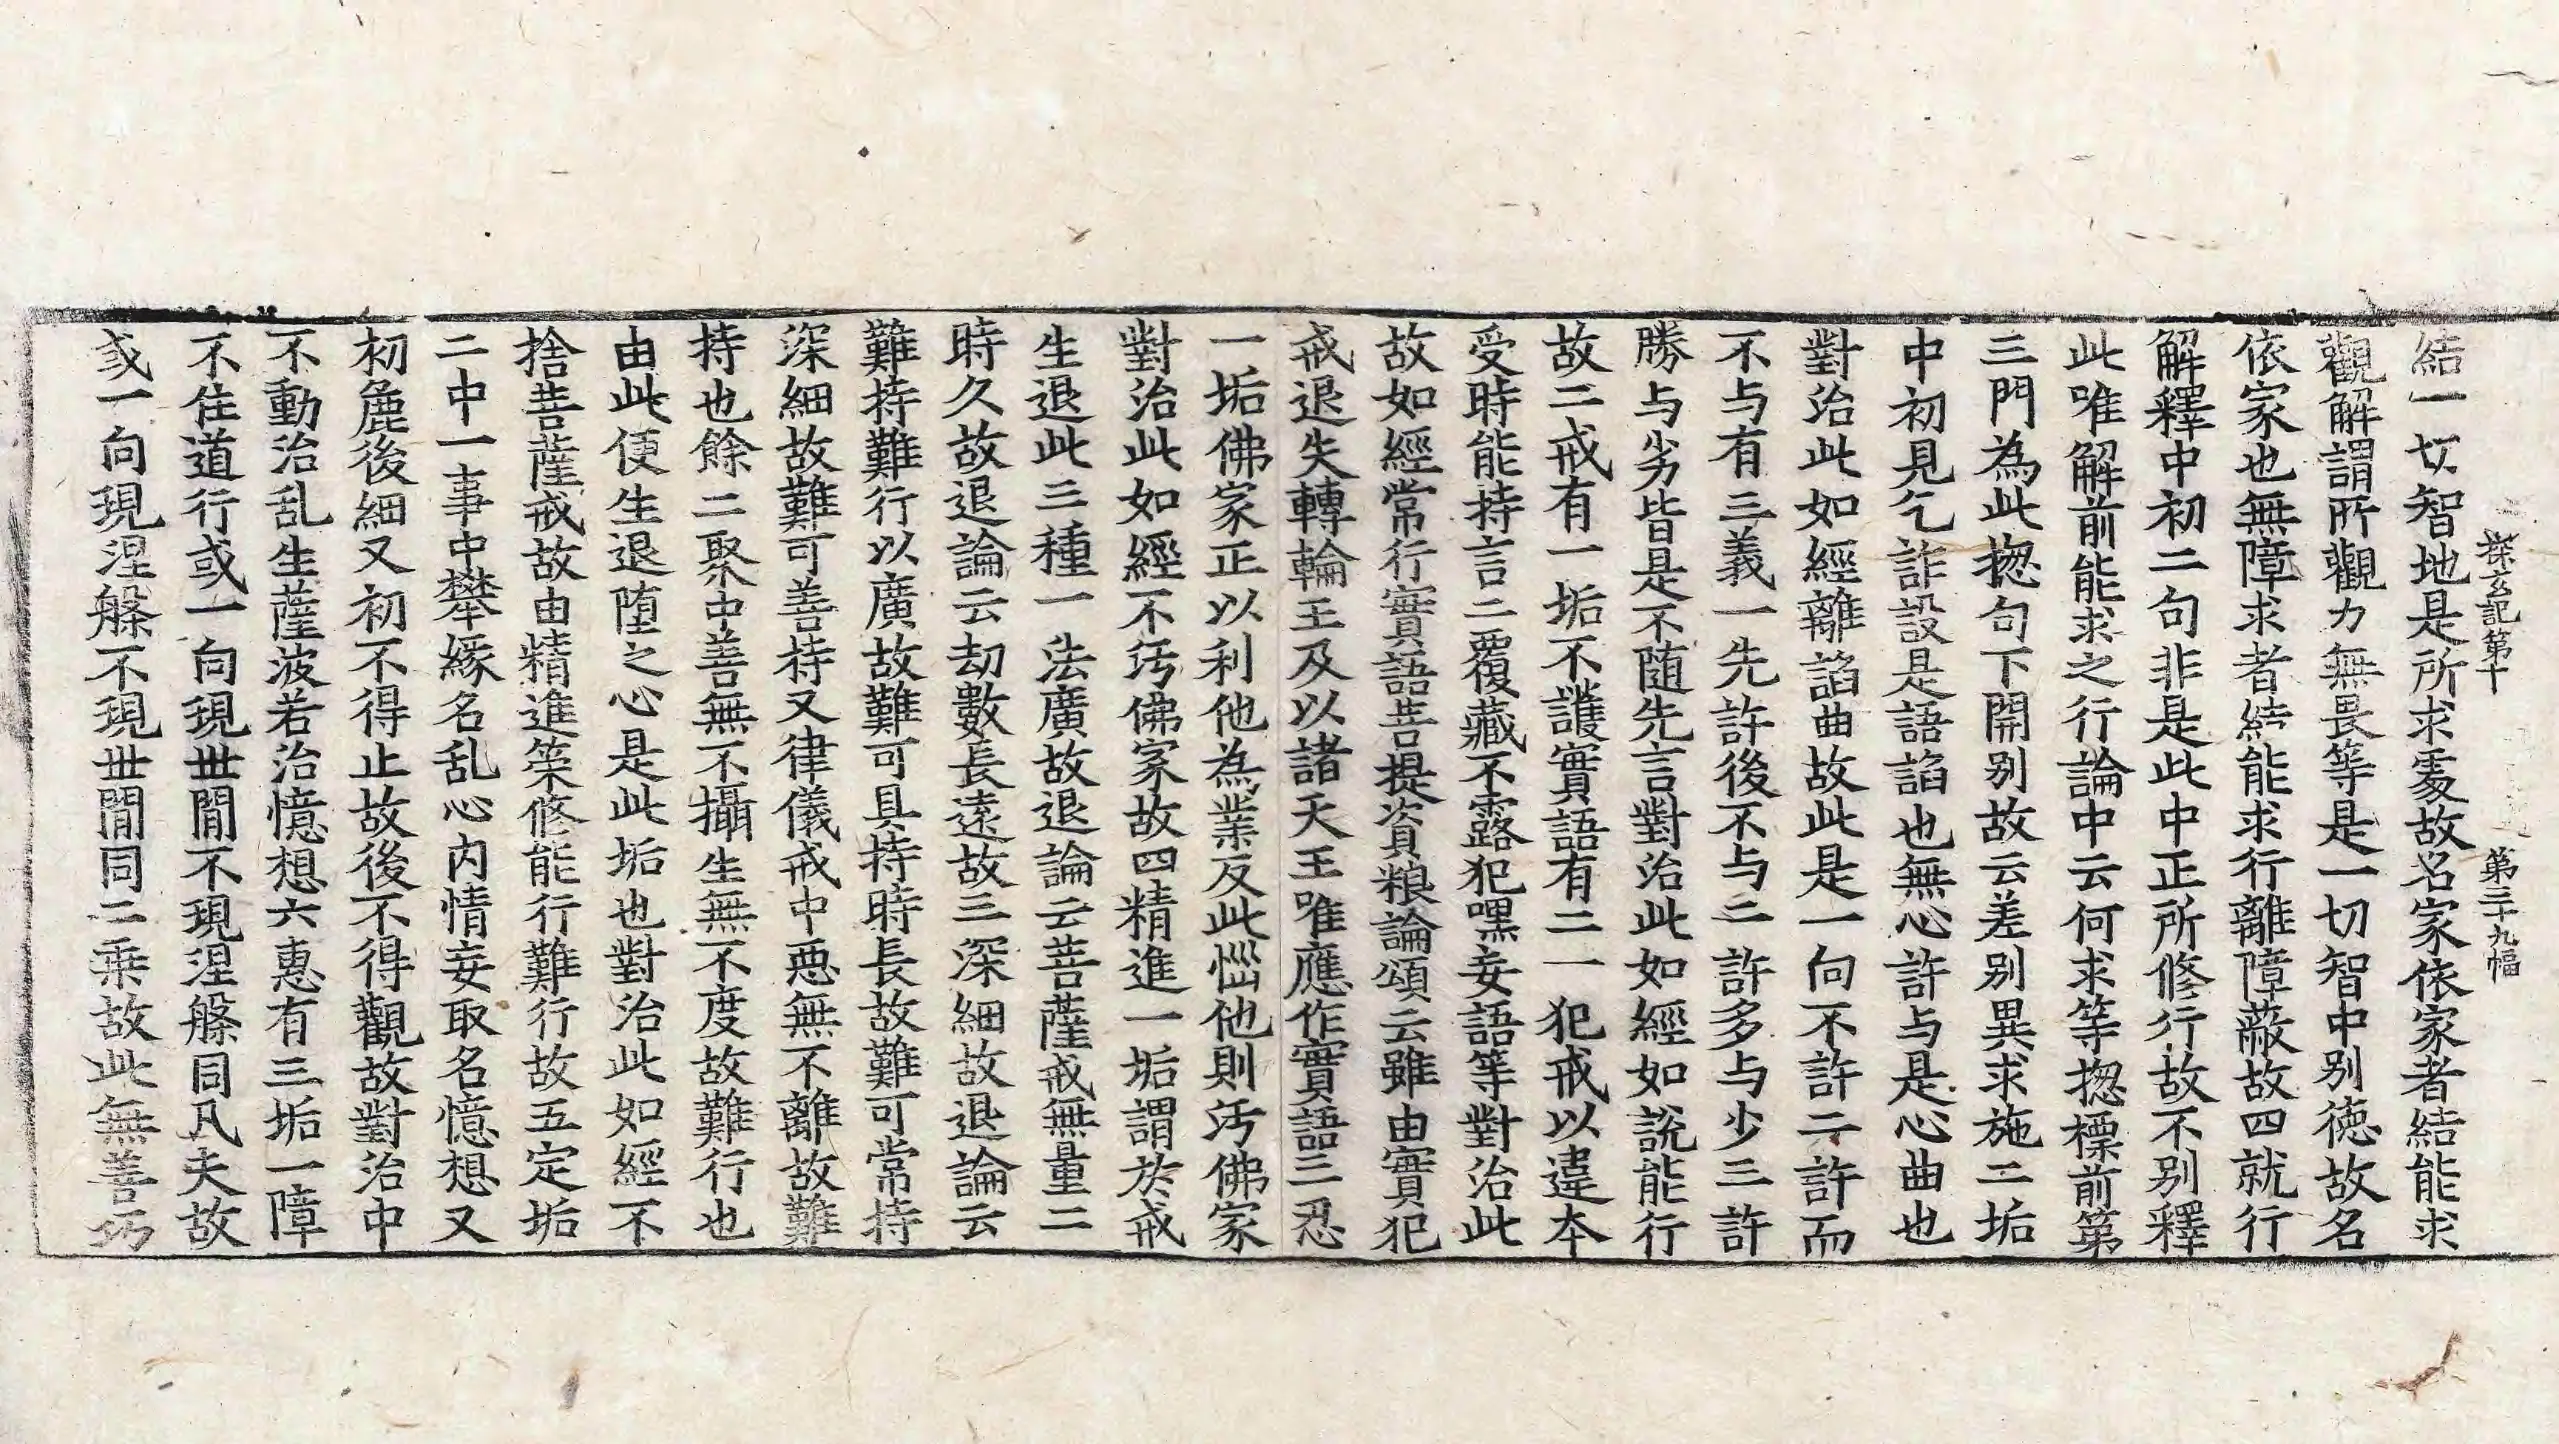 探玄記第十 第三十九幅
結一切智地是所求處故名家依家者結能求
觀解謂所觀力無畏等是一切智中别德故名
依家也無障求者結能求行離障蔽故四就行
解釋中初二句非是此中正所修行故不别釋
此唯解前能求之行論中云何求等揔標前第
三門為此揔句下開别故云差别異求施二垢
中初見乞詐設是語諂也無心許与是心曲也
對治此如經離諂曲故此是一向不許二許而
不与有三義一先許後不与二許多与少三許
勝与劣皆是不随先言對治此如經如說能行
故二戒有一垢不護實語有二一犯戒以違本
受時能持言二覆藏不露犯嘿妄語等對治此
故如經常行實語菩提資粮論頌云雖由實犯
戒退失轉輪王及以諸天王唯應作實語三忍
一垢佛家正以利他為業反此惱他則汚佛家
對治此如經不汚佛家故四精進一垢謂於戒
生退此三種一法廣故退論云菩薩戒無量二
時久故退論云劫數長遠故三深細故退論云
難持難行以廣故難可具持時長故難可常持
深細故難可善持又律儀戒中惡無不離故難
持也餘二聚中善無不攝生無不度故難行也
由此便生退堕之心是此垢也對治此如經不
捨菩薩戒故由精進策修能行難行故五定垢
二中一事中攀緣名乱心内情妄取名憶想又
初麁後細又初不得止故後不得觀故對治中
不動治乱生薩波若治憶想六惠有三垢一障
不住道行或一向現世間不現涅槃同凡夫故
或一向現涅槃不現世間同二乘故此無善巧